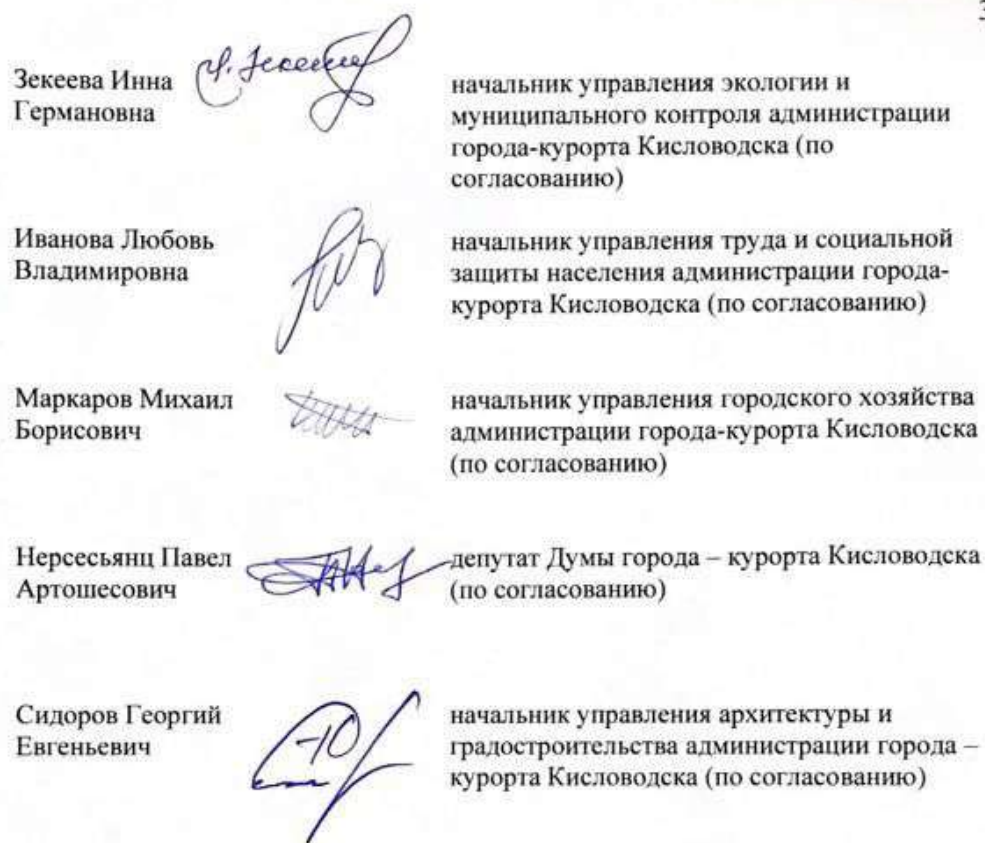 3
Зекеева Инна
Германовна
начальник управления экологии и
муниципального контроля администрации
города-курорта Кисловодска (по
согласованию)
Иванова Любовь
Владимировна
начальник управления труда и социальной
защиты населения администрации города-
курорта Кисловодска (по согласованию)
Маркаров Михаил
Борисович
начальник управления городского хозяйства
администрации города-курорта Кисловодска
(по согласованию)
Нерсесьянц Павел
Артошесович
депутат Думы города – курорта Кисловодска
(по согласованию)
Сидоров Георгий
Евгеньевич
начальник управления архитектуры и
градостроительства администрации города –
курорта Кисловодска (по согласованию)